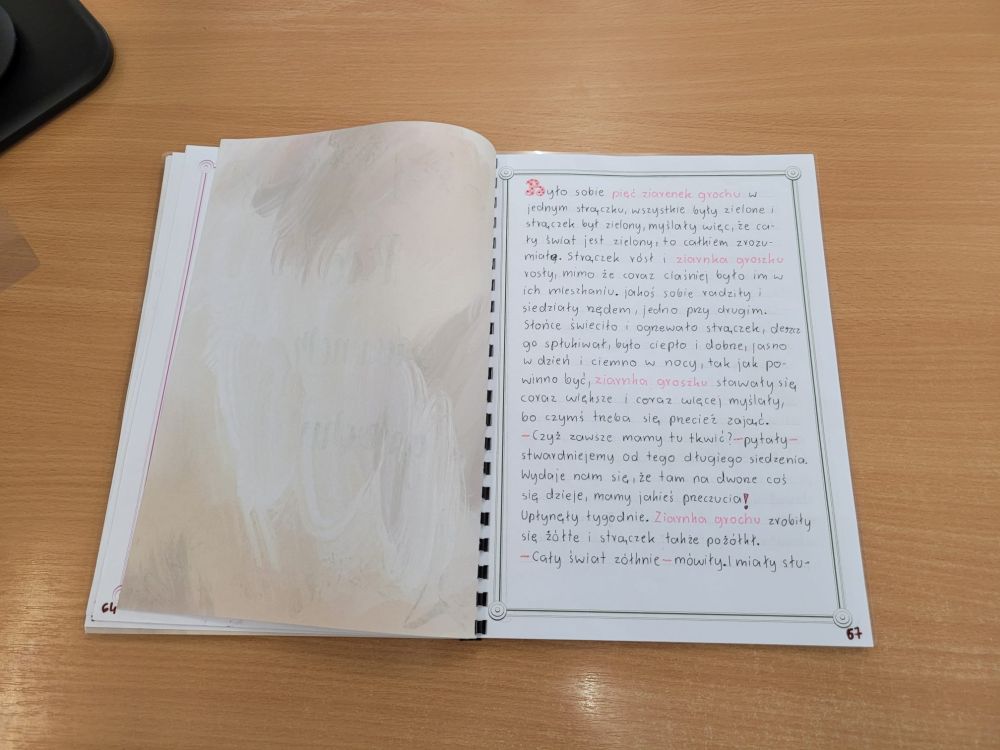 64
Było sobie pięć ziarenek grochu w
jednym strączku, wszystkie były zielone i
strączek był zielony, myślały więc, że ca-
ły świat jest zielony, to całkiem zrozu-
miałe. Strączek rósł i ziarnka groszku
rosły, mimo że coraz ciaśniej było im w
ich mieszkaniu. jakoś sobie radziły i
siedziały rzędem, jedno przy drugim.
Słońce świeciło i ogrzewało strączek, deszcz
go spłukiwał, było ciepło i dobrze, jasno
w dzień i ciemno w nocy, tak jak po-
winno być, ziarnka groszku stawały się
coraz większe i coraz więcej myślały,
bo czymś trzeba się przecież zająć.
–Czyż zawsze mamy tu tkwić?–pytały–
stwardniejemy od tego długiego siedzenia.
Wydaje nam się, że tam na dworze coś
się dzieje, mamy jakieś przeczucia!
Upłynęły tygodnie. Ziarnka grochu zrobiły
się żółte i strączek także pożółkł.
–Cały świat żółknie–mówiły. I miały słu-
67